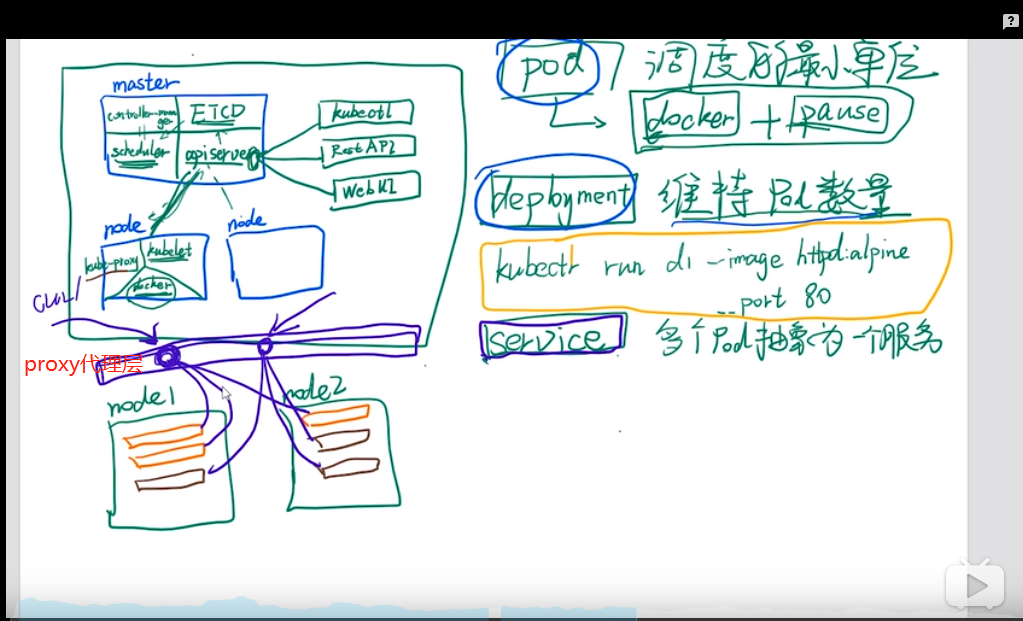 master
controller-manager
ETCD
scheduler
apiserver
kubectl
RestAPI
WebUI
node
node
kubelet
kube-proxy
docker
proxy代理层
node1
node2
pod 调度的最小单位
docker + pause
deployment 维持Pod数量
kubectr run d1 --image httpd:alpine
--port 80
service 多个Pod抽象为一个服务
?